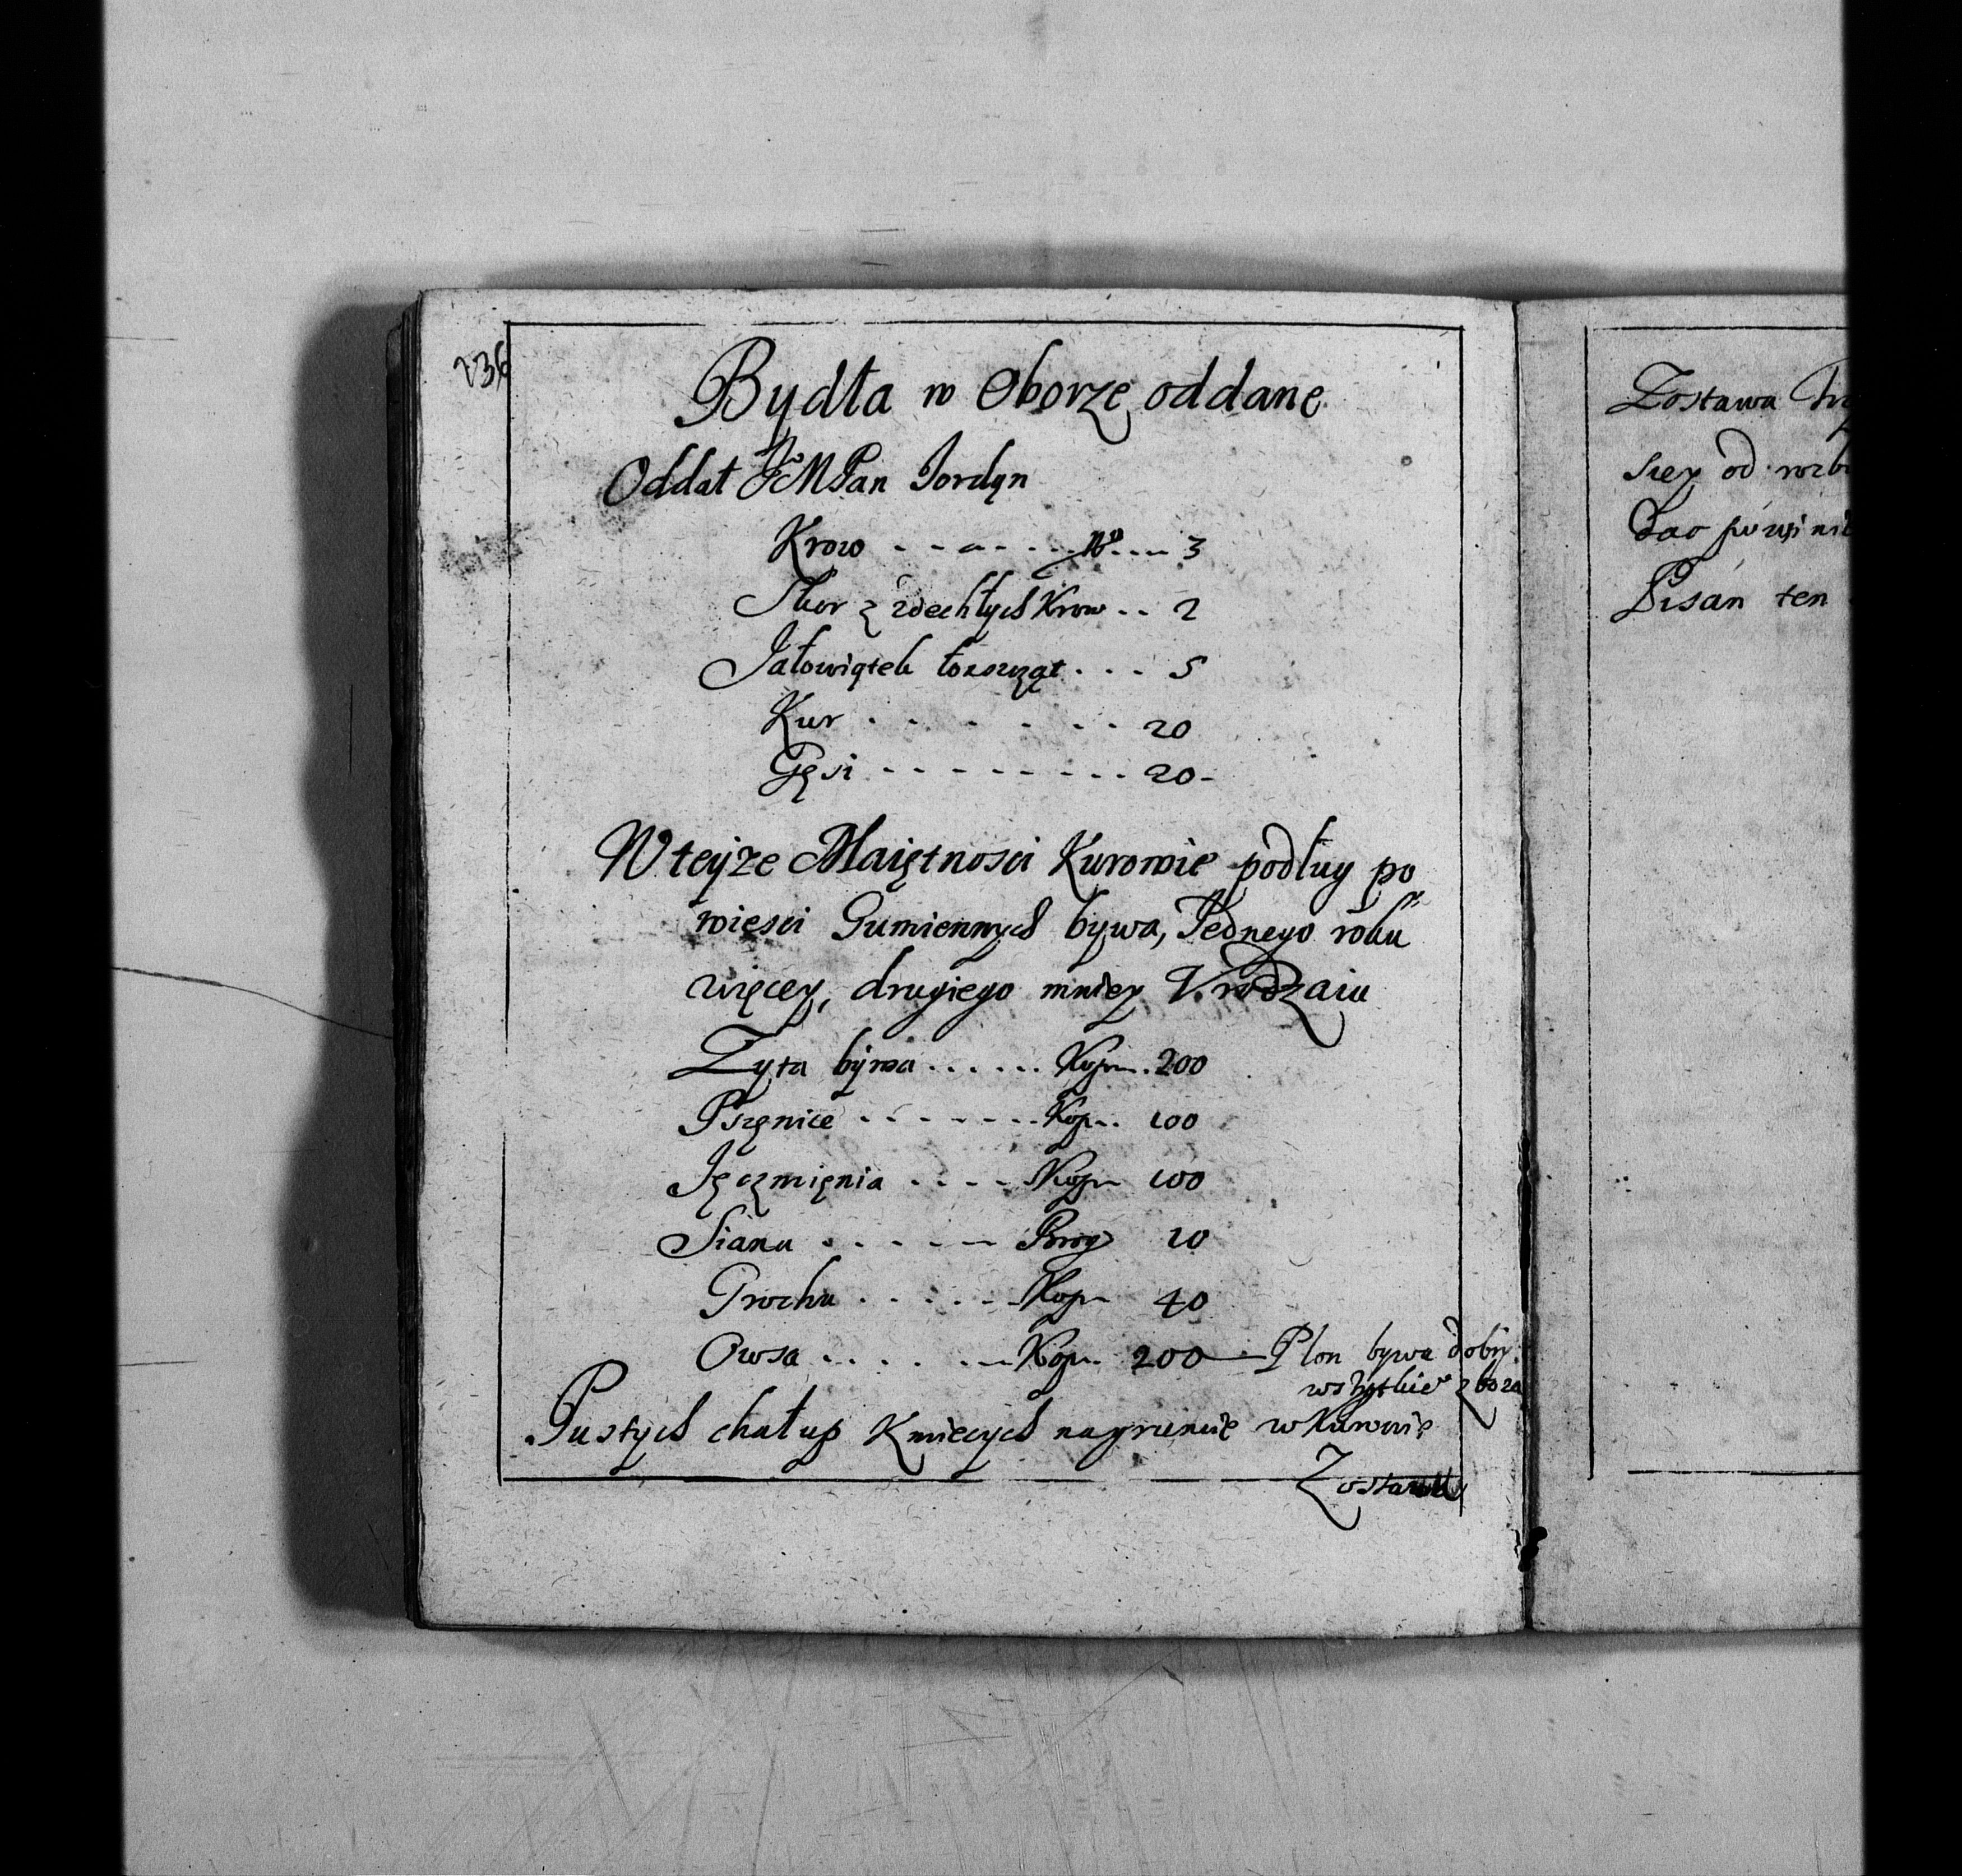 236
Bydła w Oborze oddane
Oddał JoMPan Jordan
Krow - - - - - . . No . . . 3
Skor z zdechłych Krow . . 2
Jałowiątek łonszcząt . . . 5
Kur . . . . . . . 20
Gęsi - - - - - - - - - 20 -
W teyże Maiętnosci Kurowie podług po
wiesci Gumiennych bywa, Jednego roku
więcey, drugiego mniey Vrodzaiu
Zyta bywa . . . . . . Kop . 200
Pszenice . . - - - - - Kop . . 100
Jęczmięnia . . . - Kop 100
Siana . . . - - - Brog 10
Grochu . . . . - - Kop 40
Owsa . . . . . - Kop . 200 — Plon bywa dobry
wszytkie zboza
Pustych chałup Kmiecych nagruncie w Kurowie
Zostawa
Zostawa
siey od
Pisan ten